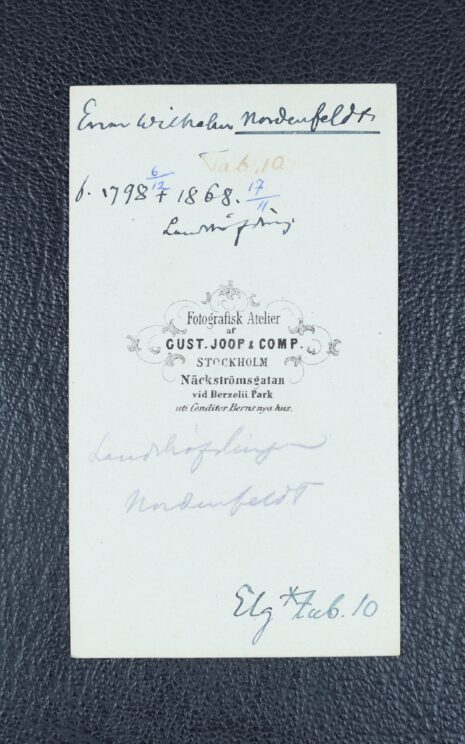 Enar Wilhelm Nordenfeldt
Tab. 10
f. 1798 6/12 † 1868. 17/11
Landshöfding
Fotografisk Atelier
af
GUST. JOOP & COMP.
STOCKHOLM
Näckströmsgatan
vid Berzelii Park
uti Conditor Berns nya hus.
Landshöfdingen
Nordenfeldt
Elg * tab. 10